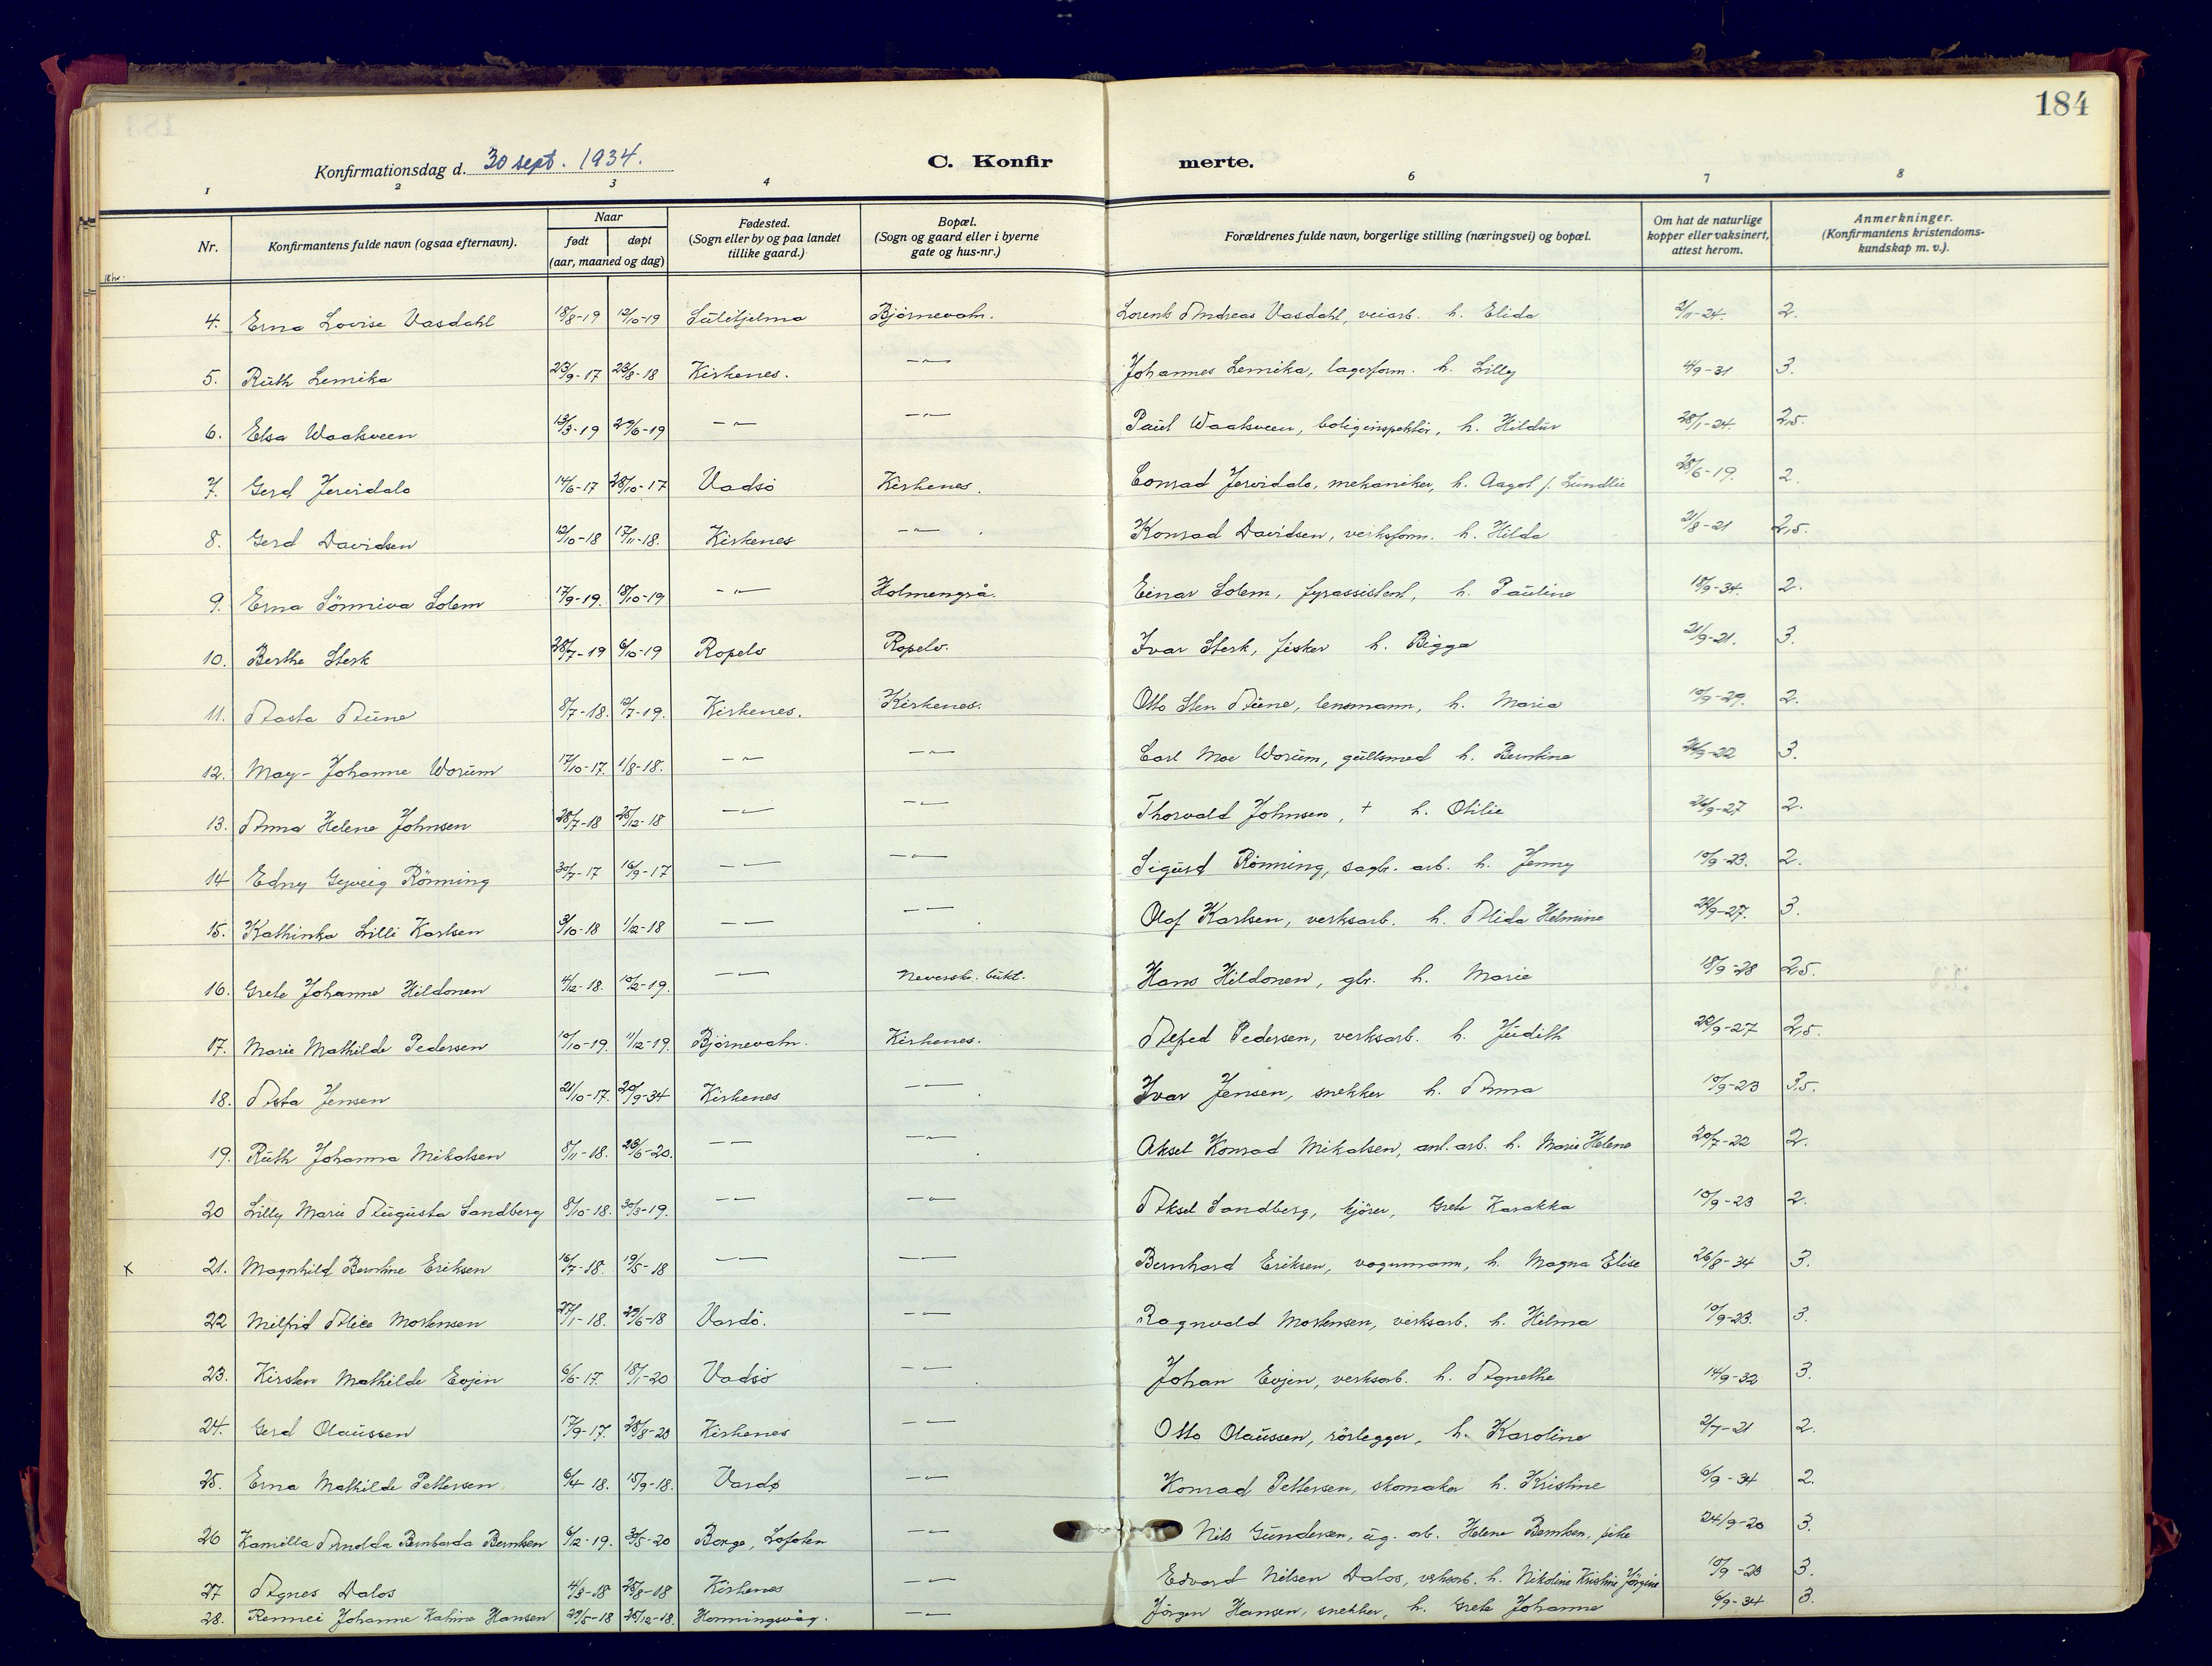 184
Konfirmationsdag d. 30 sept. 1934.
C. Konfir merte.
1 2 3 4 6 7 8
Nr. | Konfirmantens fulde navn (ogsaa efternavn). | Naar født døpt (aar, maaned og dag) | Fødested. (Sogn eller by og paa landet tillike gaard.) | Bopæl. (Sogn og gaard eller i byerne gate og hus-nr.) | Forældrenes fulde navn, borgerlige stilling (næringsvei) og bopæl. | Om hat de naturlige kopper eller vaksinert, attest herom. | Anmerkninger. (Konfirmantens kristendomskundskap m. v.).
4. Erna Lovise Vasdahl 18/8-19 12/10-19 Sulitjelma Björnevatn. Lorents Andreas Vasdahl, veiarb. h. Elida 2/11-24. 2.
5. Ruth Lemika 23/9-17 23/8-18 Kirkenes. -"- Johannes Lemika, lagerform. h. Lilly 4/9-31 3.
6. Elsa Waaksveen 13/3-19 29/6-19 -"- -"- Paul Waaksveen, boliginspektör, h. Hildur 28/1-24. 2,5.
7. Gerd Jervidalo 14/6-17 28/10-17 Vadsö Kirkenes. Conrad Jervidalo, mekaniker, h. Aagot f. Lundlie 28/6-19. 2.
8. Gerd Davidsen 12/10-18 17/11-18. Kirkenes -"- Konrad Davidsen, verksform. h. Hilda 2/8-21 2,5.
9. Erna Sönniva Solem 17/9-19. 18/10-19 -"- Holmengrå. Einar Solem, fyrassistent, h. Pauline 18/9-34. 2.
10. Berthe Sterk 28/7-19 6/10-19 Ropelv Ropelv. Ivar Sterk, fisker h. Bigga 21/9-21. 3.
11. Aasta Aune 8/7-18. 12/7-19. Kirkenes. Kirkenes. Otto Sten Aune, lensmann, h. Maria 10/9-29. 2.
12. May-Johanne Worum 17/10-17. 1/8-18. -"- -"- Carl Moe Worum, gullsmed h. Berntine 3.
13. Anna Helene Johnsen 28/7-18 26/12-18 -"- -"- Thorvald Johnsen, + h. Otilie 26/9-27 2.
14 Edny Gyveig Rönning 30/7-17 16/9-17 -"- -"- Sigurd Rönning, sagbr. arb. h. Jenny 10/9-23. 2.
15. Kathinka Lilli Karlsen 3/10-18 1/12-18 -"- -"- Olaf Karlsen, verksarb. h. Alida Helmine 24/9-27. 3.
16. Grete Johanne Hildonen 4/12-18. 10/2-19. -"- Neversk. bukt. Hans Hildonen, gbr. h. Marie 18/9-28 2,5.
17. Marie Mathilde Pedersen 10/10-19. 11/12-19. Björnevatn. Kirkenes. Alfred Pedersen, verksarb. h. Judith 22/9-27 2,5.
18. Asta Jensen 21/10-17. 20/9-34 Kirkenes -"- Ivar Jensen, snekker h. Anna 10/9-23 3,5.
19. Ruth Johanna Mikalsen 8/11-18. 23/6-20. -"- -"- Aksel Konrad Mikalsen, anl.arb. h. Marie Helene 20/7-22 2.
20 Lilly Marie Augusta Sandberg 8/10-18. 30/3-19. -"- -"- Aksel Sandberg, kjörer, Grete Karakka 10/9-23 2.
x 21. Magnhild Berntine Eriksen 16/7-18. 19/5-18 -"- -"- Bernhard Eriksen, vognmann, h. Magna Elise 26/8-34 3.
22 Milfrid Alice Mortensen 27/1-18. 29/6-18 Vardö. -"- Ragnvald Mortensen, verksarb. h. Hilma 10/9-23. 3.
23. Kirsten Mathilde Evjen 6/6-17. 18/1-20 Vadsö -"- Johan Evjen, verksarb. h. Agnethe 14/9-32 3.
24. Gerd Olaussen 17/9-17. 28/8-20 Kirkenes -"- Otto Olaussen, rörlegger, h. Karoline 2/7-21 2.
25. Erna Mathilde Pettersen 6/4-18. 15/9-18. Vardø -"- Konrad Pettersen, skomaker h. Kristine 6/9-34 2.
26 Kamilla Arnolda Bernharda Berntsen 6/12-19. 30/5-20 Borge, Lofoten -"- Nils Gundersen, ug. arb. Helene Berntsen, pike 24/9-20 3.
27 Agnes Dalos 4/3-18 25/8-18 Kirkenes -"- Edvard Nilsen Dalos, verksarb. h. Nikoline Kristine Jörgine 10/9-23 3.
28. Rennei Johanne Katrine Hansen 29/5-18 26/12-18. Honningsvåg. -"- Jörgen Hansen, snekker, h. Grete Johanne 6/9-34 3.